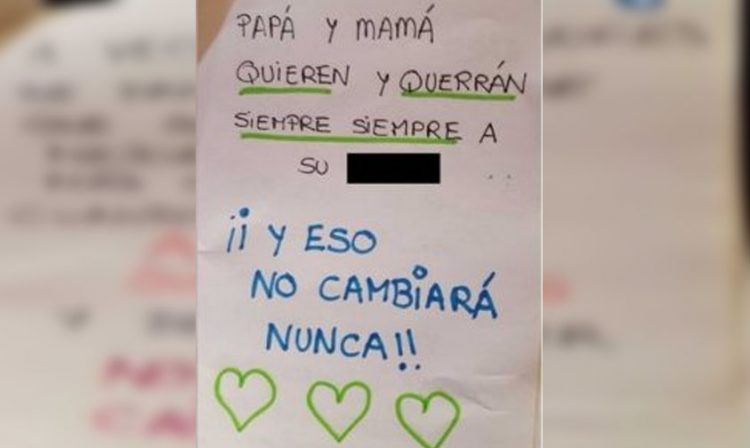 PAPÁ Y MAMÁ
QUIEREN Y QUERRÁN
SIEMPRE SIEMPRE A
SU
¡¡Y ESO
NO CAMBIARÁ
NUNCA!!